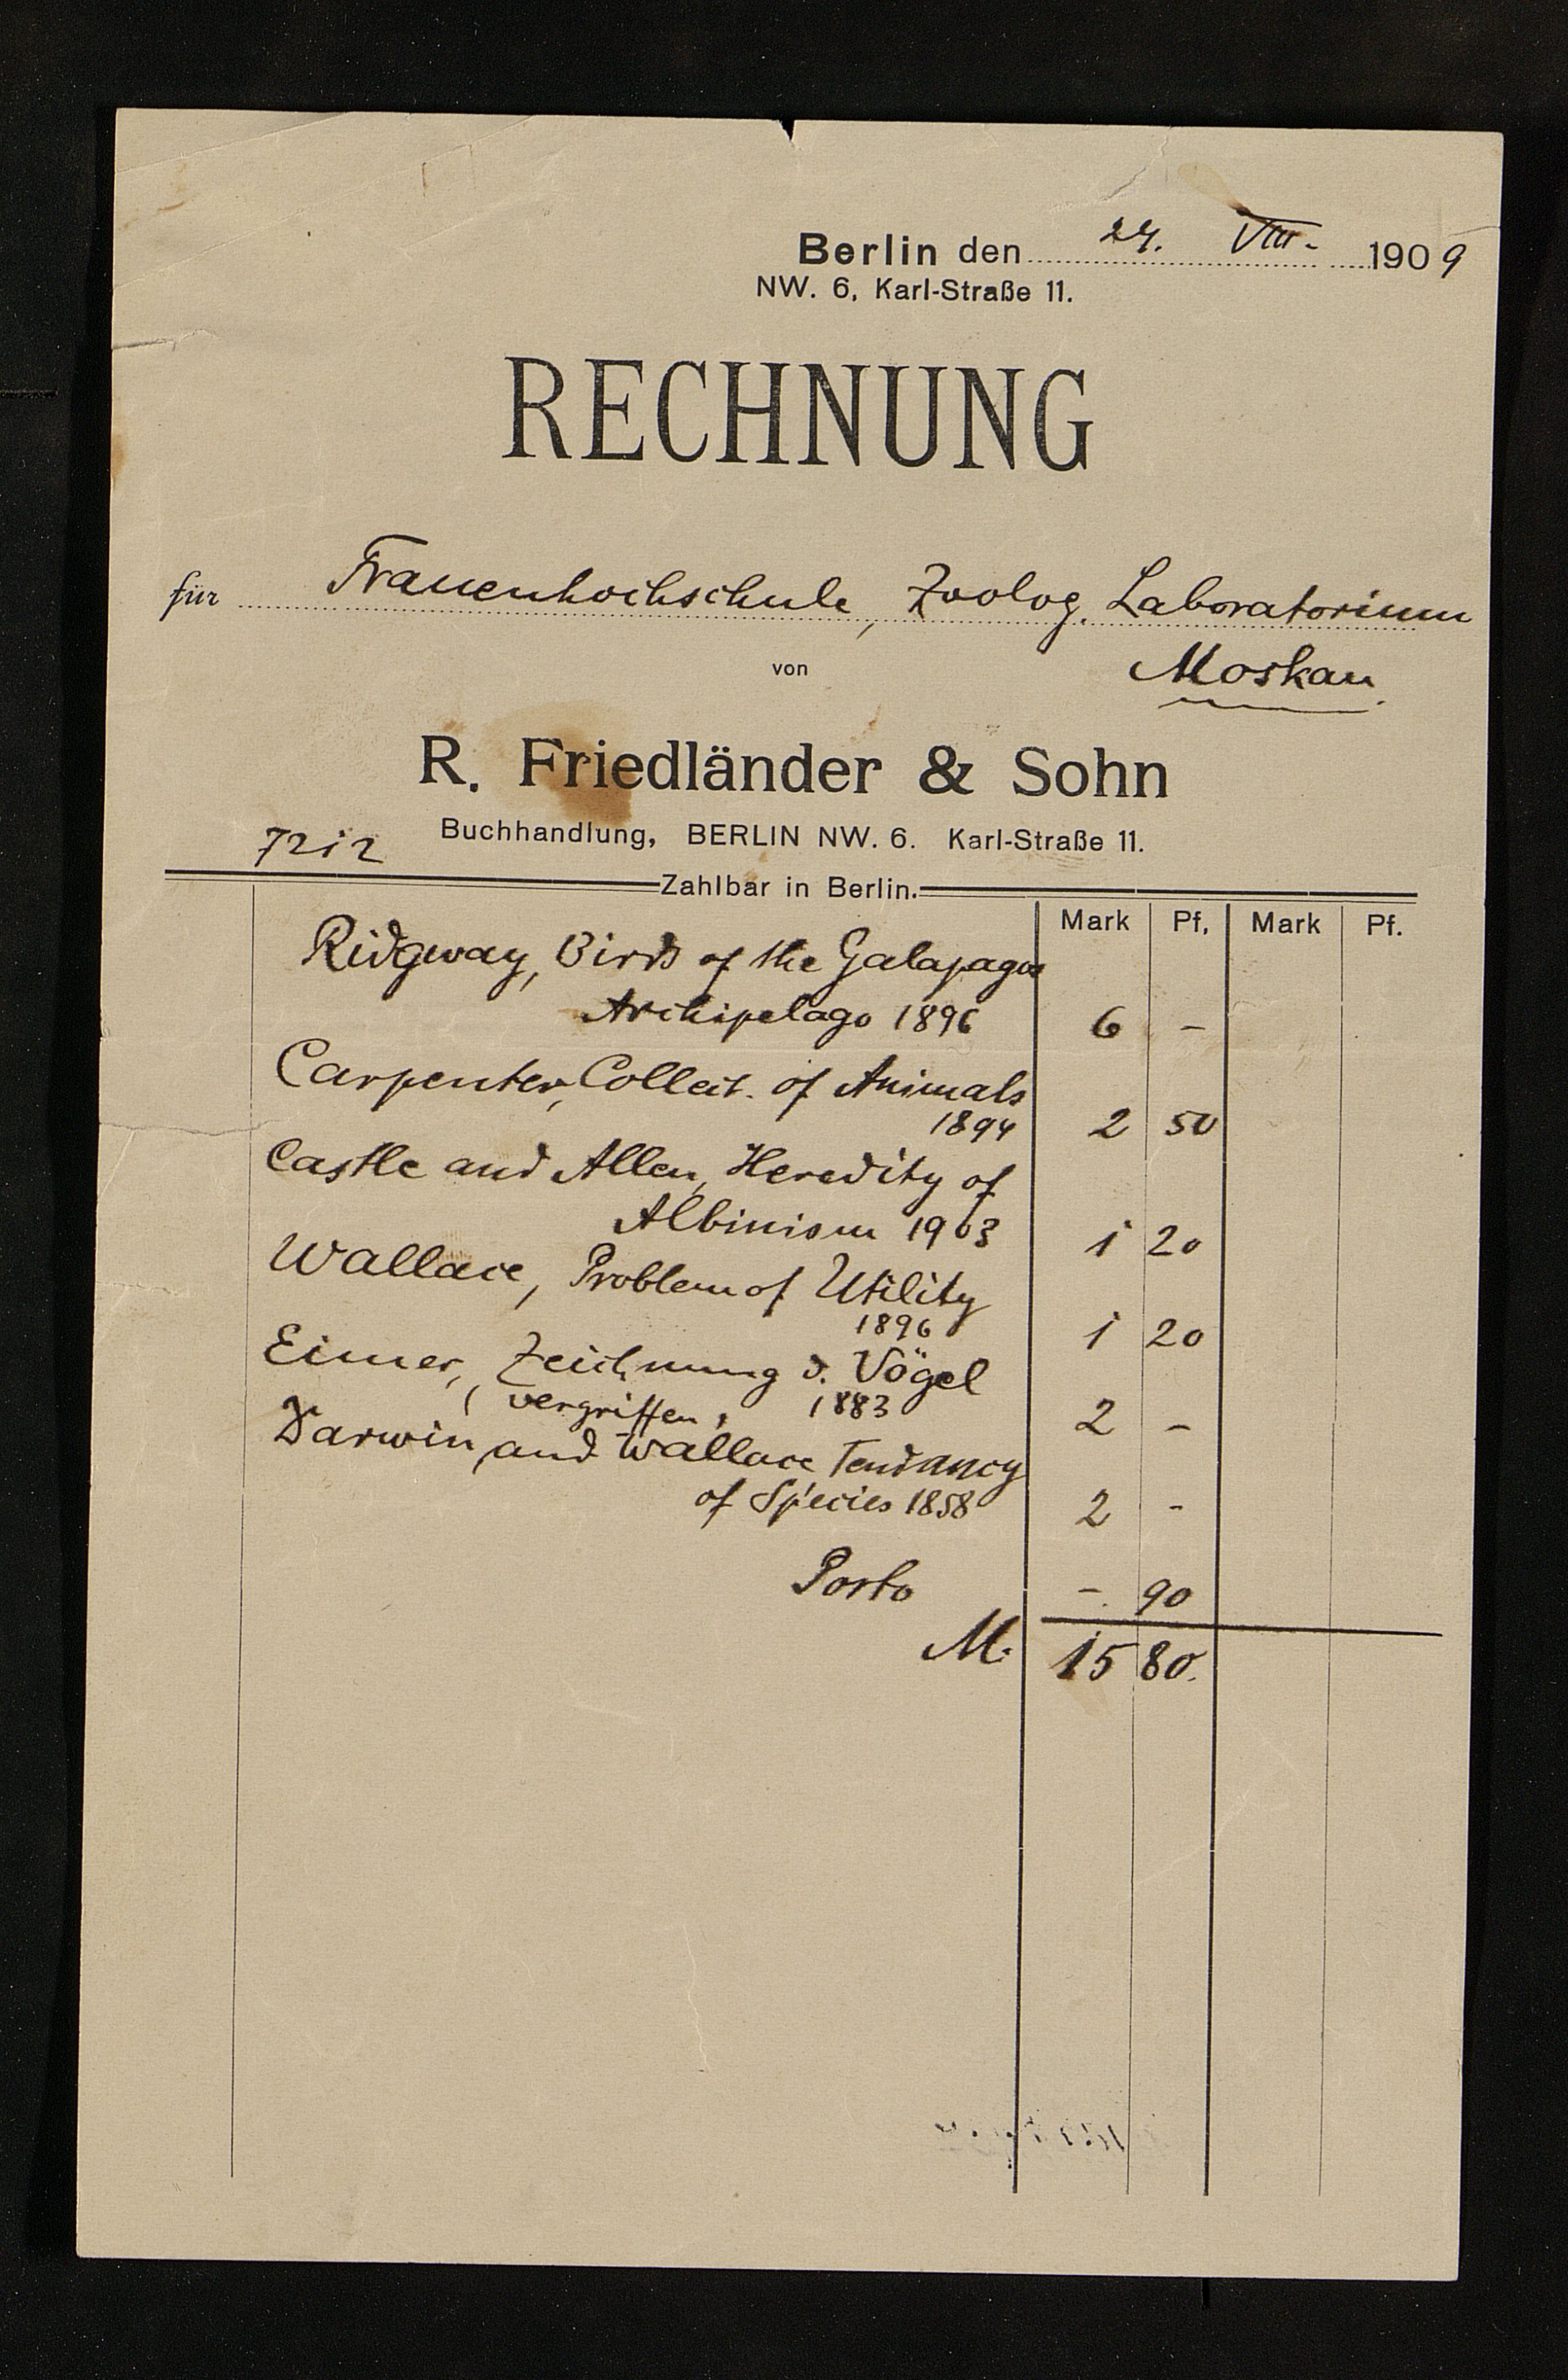 Berlin den 24. VIII. 1909
NW. 6, Karl-Straße 11.
RECHNUNG
für Frauenhochschule, Zoolog. Laboratorium
von Moskau.
R. Friedländer & Sohn
7212 Buchhandlung, BERLIN NW. 6. Karl-Straße 11.
Zahlbar in Berlin.
Mark Pf. Mark Pf.
Ridgway, Birds of the Galapagos
Archipelago 1896 6 –
Carpenter, Collect. of Animals
1894 2 50
Castle and Allen, Heredity of
Albinism 1903 1 20
Wallace, Problem of Utility
1896 1 20
Eimer, Zeichnung d. Vögel
(vergriffen, 1883 2 –
Darwin and Wallace Tendancy
of Species 1858 2 -
Porto –. 90
M. 15 80.